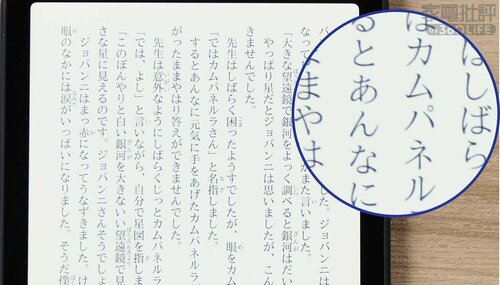 家電批評
the360.LIFE
はしばら
はカムパネル
るとあんなに
ままやは
バ
した。ジョバンニは
なって
また言いました。
「大きな望遠鏡で銀河をよっく調べると銀河はだい
やっぱり星だとジョバンニは思いましたが、こん
きませんでした。
先生はしばらく困ったようすでしたが、眼をカム
「ではカムパネルラさん」と名指しました。
するとあんなに元気に手をあげたカムパネルラ
がったままやはり答えができませんでした。
先生は意外なようにしばらくじっとカムパネル
「では、よし」と言いながら、自分で星図を指しま
「このぼんやりと白い銀河を大きないい望遠鏡で見
さな星に見えるのです。ジョバンニさんそうでしょ
ジョバンニはまっ赤になってうなずきました。け
眼のなかには涙がいっぱいになりました。そうだ僕